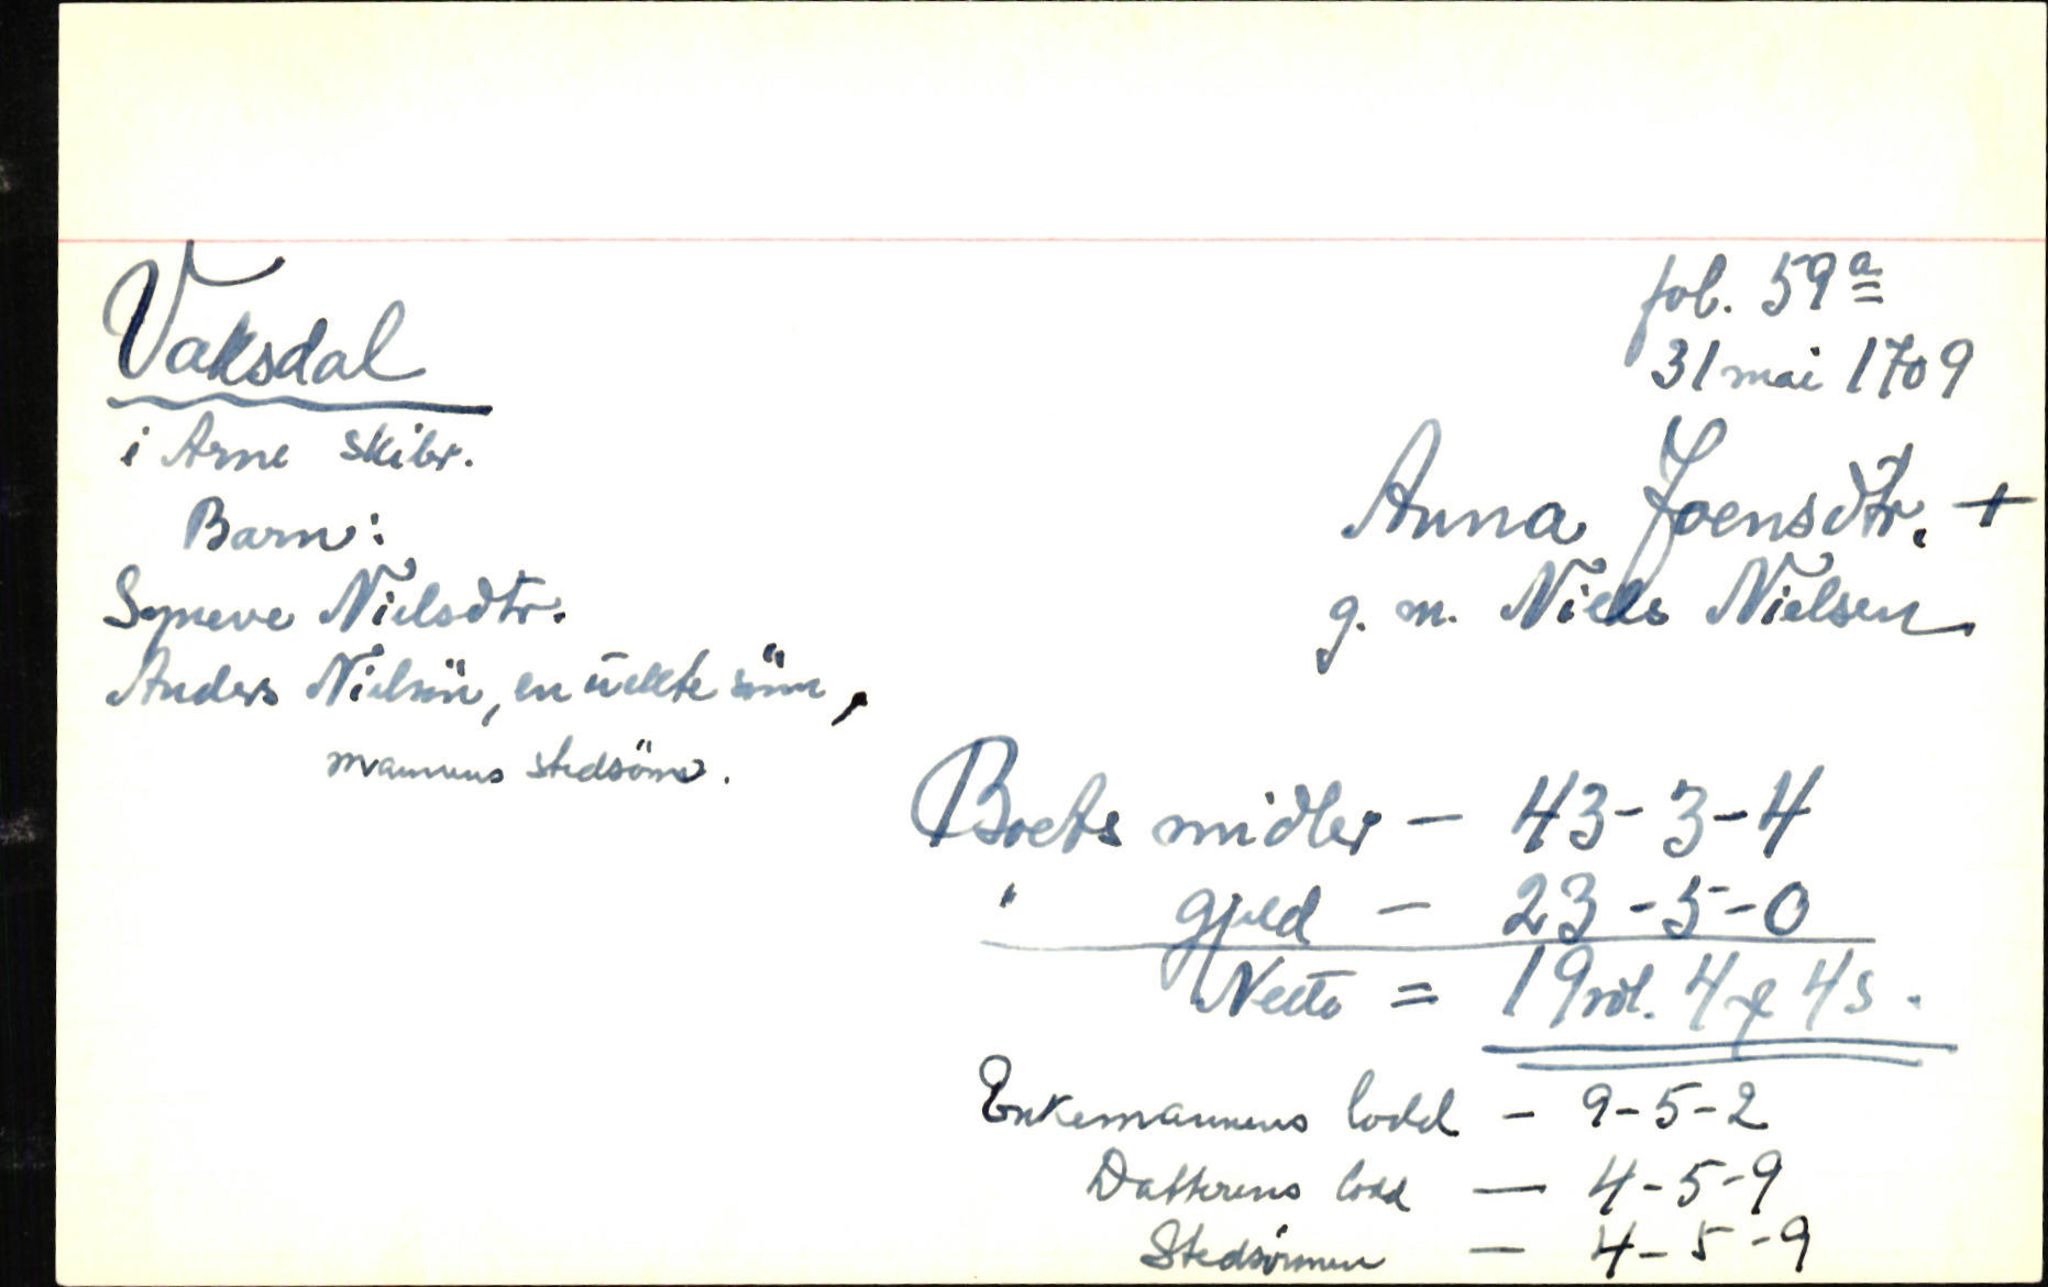 fol. 59a
31 mai 1709
Vaksdal
i Arne skibr.
Anna Joensdtr. +
g. m. Niels Nielsen
Barn:
Syneve Nielsdtr.
Anders Nielsön, en uekte sönn,
mannens stedsönn.
Boets midler - 43-3-4
" gjeld - 23-5-0
Netto = 19 rdl. 4 ꝑ 4 s.
Enkemannens lodd - 9-5-2
Datterens lodd - 4-5-9
Stedsönnen - 4-5-9